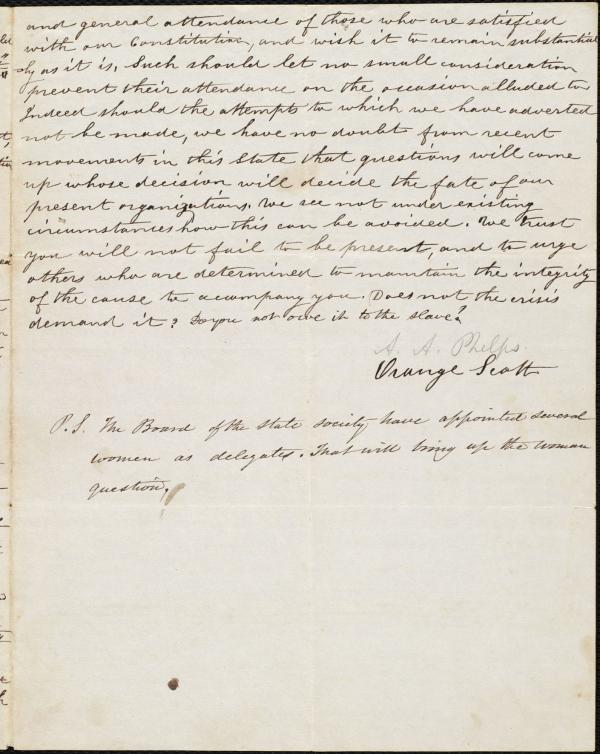 and general attendance of those who are satisfied
with our Constitution, and wish it to remain substantial
ly as it is. Such should let no small consideration
prevent their attendance on the occasion alluded to.
Indeed should the attempts to which we have adverted
not be made, we have no doubt from recent
movements in this State that questions will come
up whose decision will decide the fate of our
present organizations. We see not under existing
circumstances how this can be avoided. We trust
you will not fail to be present, and to urge
others who are determined to maintain the integrity
of the cause to accompany you. Does not the crisis
demand it? Do you not owe it to the slave?
A. A. Phelps.
Orange Scott
P.S. The Board of the state society have appointed several
women as delegates. That will bring up the woman
question.